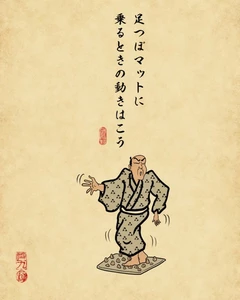 足つぼマットに
乗るときの動きはこう